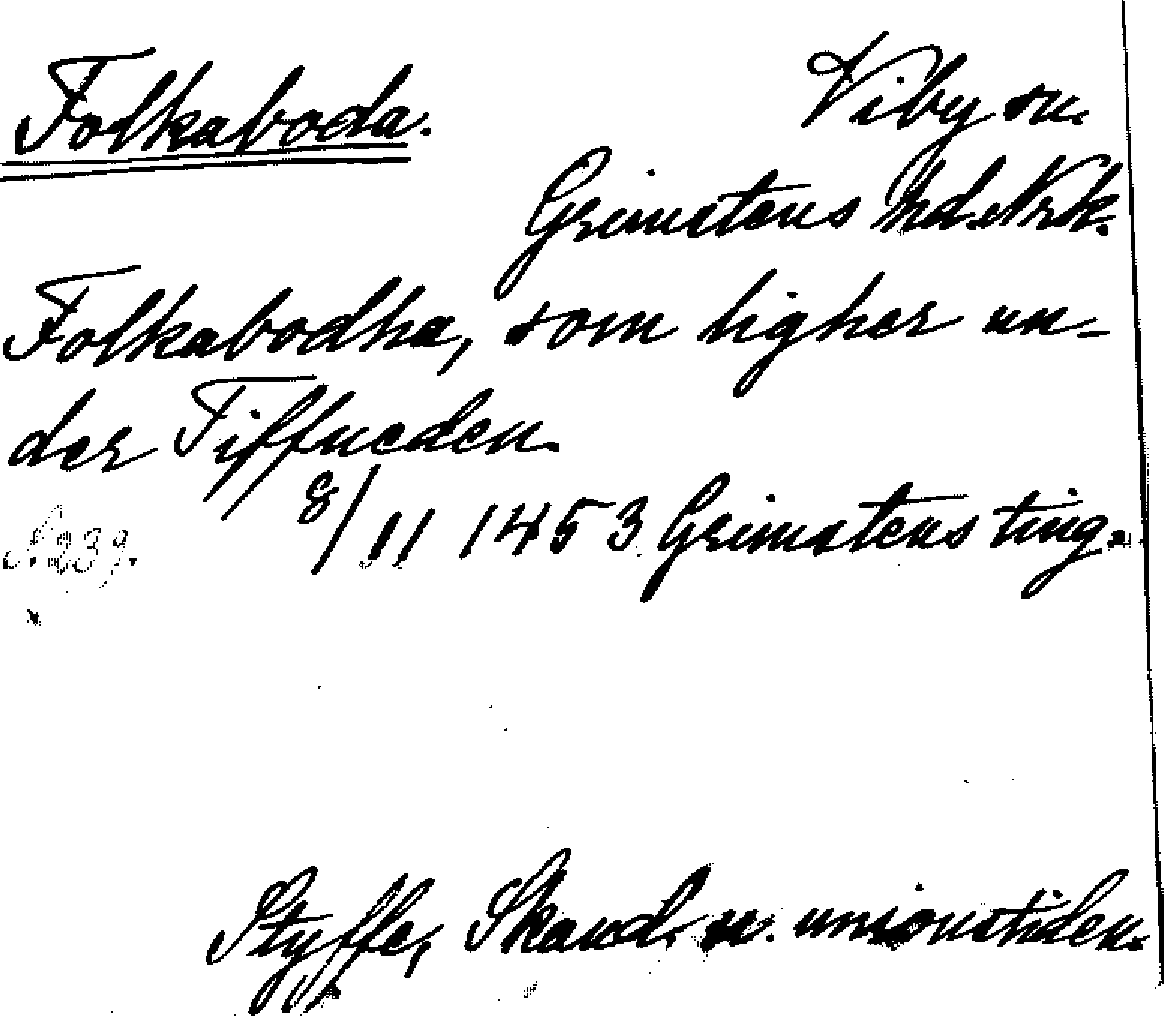 Folkaboda. Viby sn.
Grimstens hd. Nrk.
Folkabodha, som ligher un-
der Tiffueden.
8/11 1453 Grimstens ting.
S. 239.
Styffe, Skand. u. unionstiden.